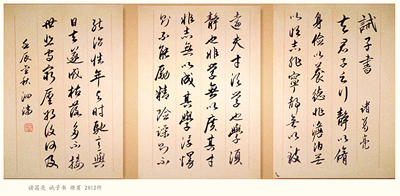 誡子書
諸葛亮
夫君子之行靜以脩
身儉以養德非澹泊無
以明志非寧靜無以致
遠夫才須學也學須
靜也非學無以廣其才
非志無以成其學淫慢
則不能勵精險躁則不
能治性年與時馳意與
日去遂成枯落多不接
世悲守窮廬將復何及
壬辰秋
诸葛亮 诫子书 2012作